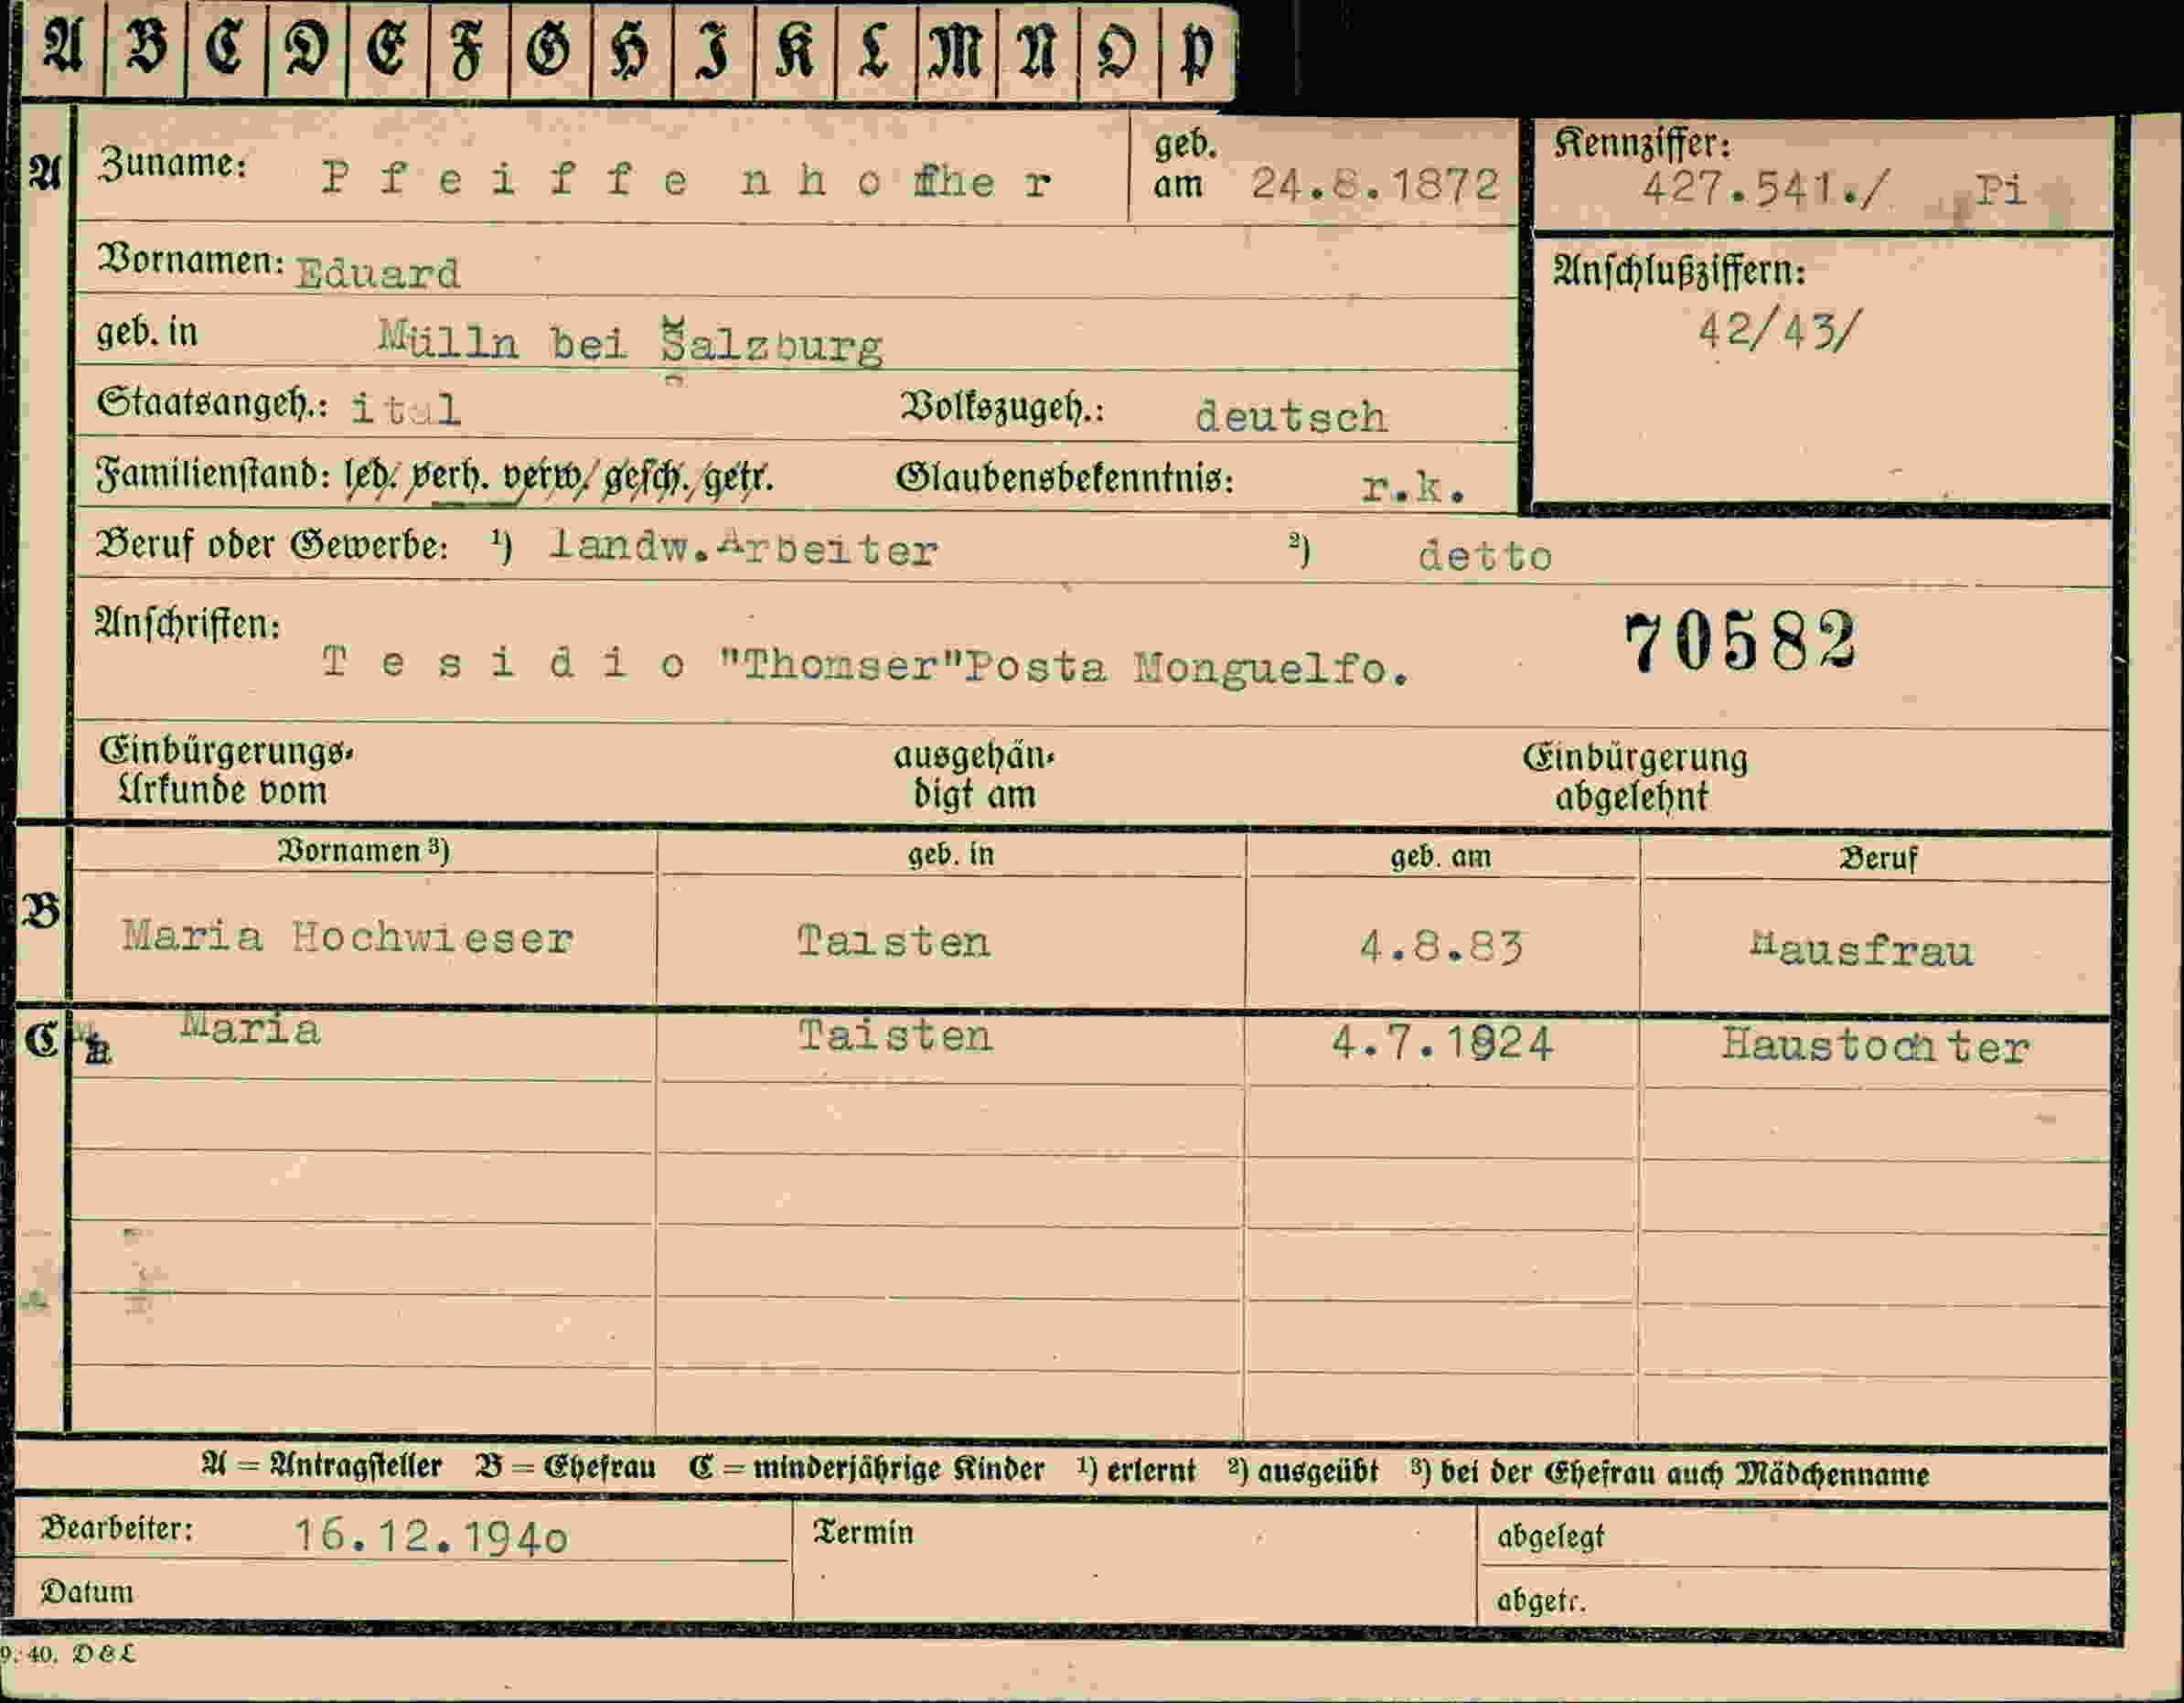 A B C D E F G H I K L M N O P
A Zuname: P f e i f f e n h o f e r geb. am 24.8.1872 Kennziffer: 427.541./ Pi
Vornamen: Eduard
Anschlußziffern: 42/43/
geb. in Mülln bei Salzburg
Staatsangeh.: ital Volkszugeh.: deutsch
Familienstand: led. verh. verw. gesch. getr. Glaubensbekenntnis: r.k.
Beruf oder Gewerbe: ¹) landw.Arbeiter ²) detto
Anschriften: 70582
T e s i d i o "Thomser"Posta Monguelfo.
Einbürgerungs- ausgehän- Einbürgerung
Urkunde vom digt am abgelehnt
Vornamen ³) geb. in geb. am Beruf
B Maria Hochwieser Taisten 4.8.83 Hausfrau
C Maria Taisten 4.7.1924 Haustochter
A = Antragsteller B = Ehefrau C = minderjährige Kinder ¹) erlernt ²) ausgeübt ³) bei der Ehefrau auch Mädchenname
Bearbeiter: 16.12.194o Termin abgelegt
Datum abgetr.
9. 40. D & L